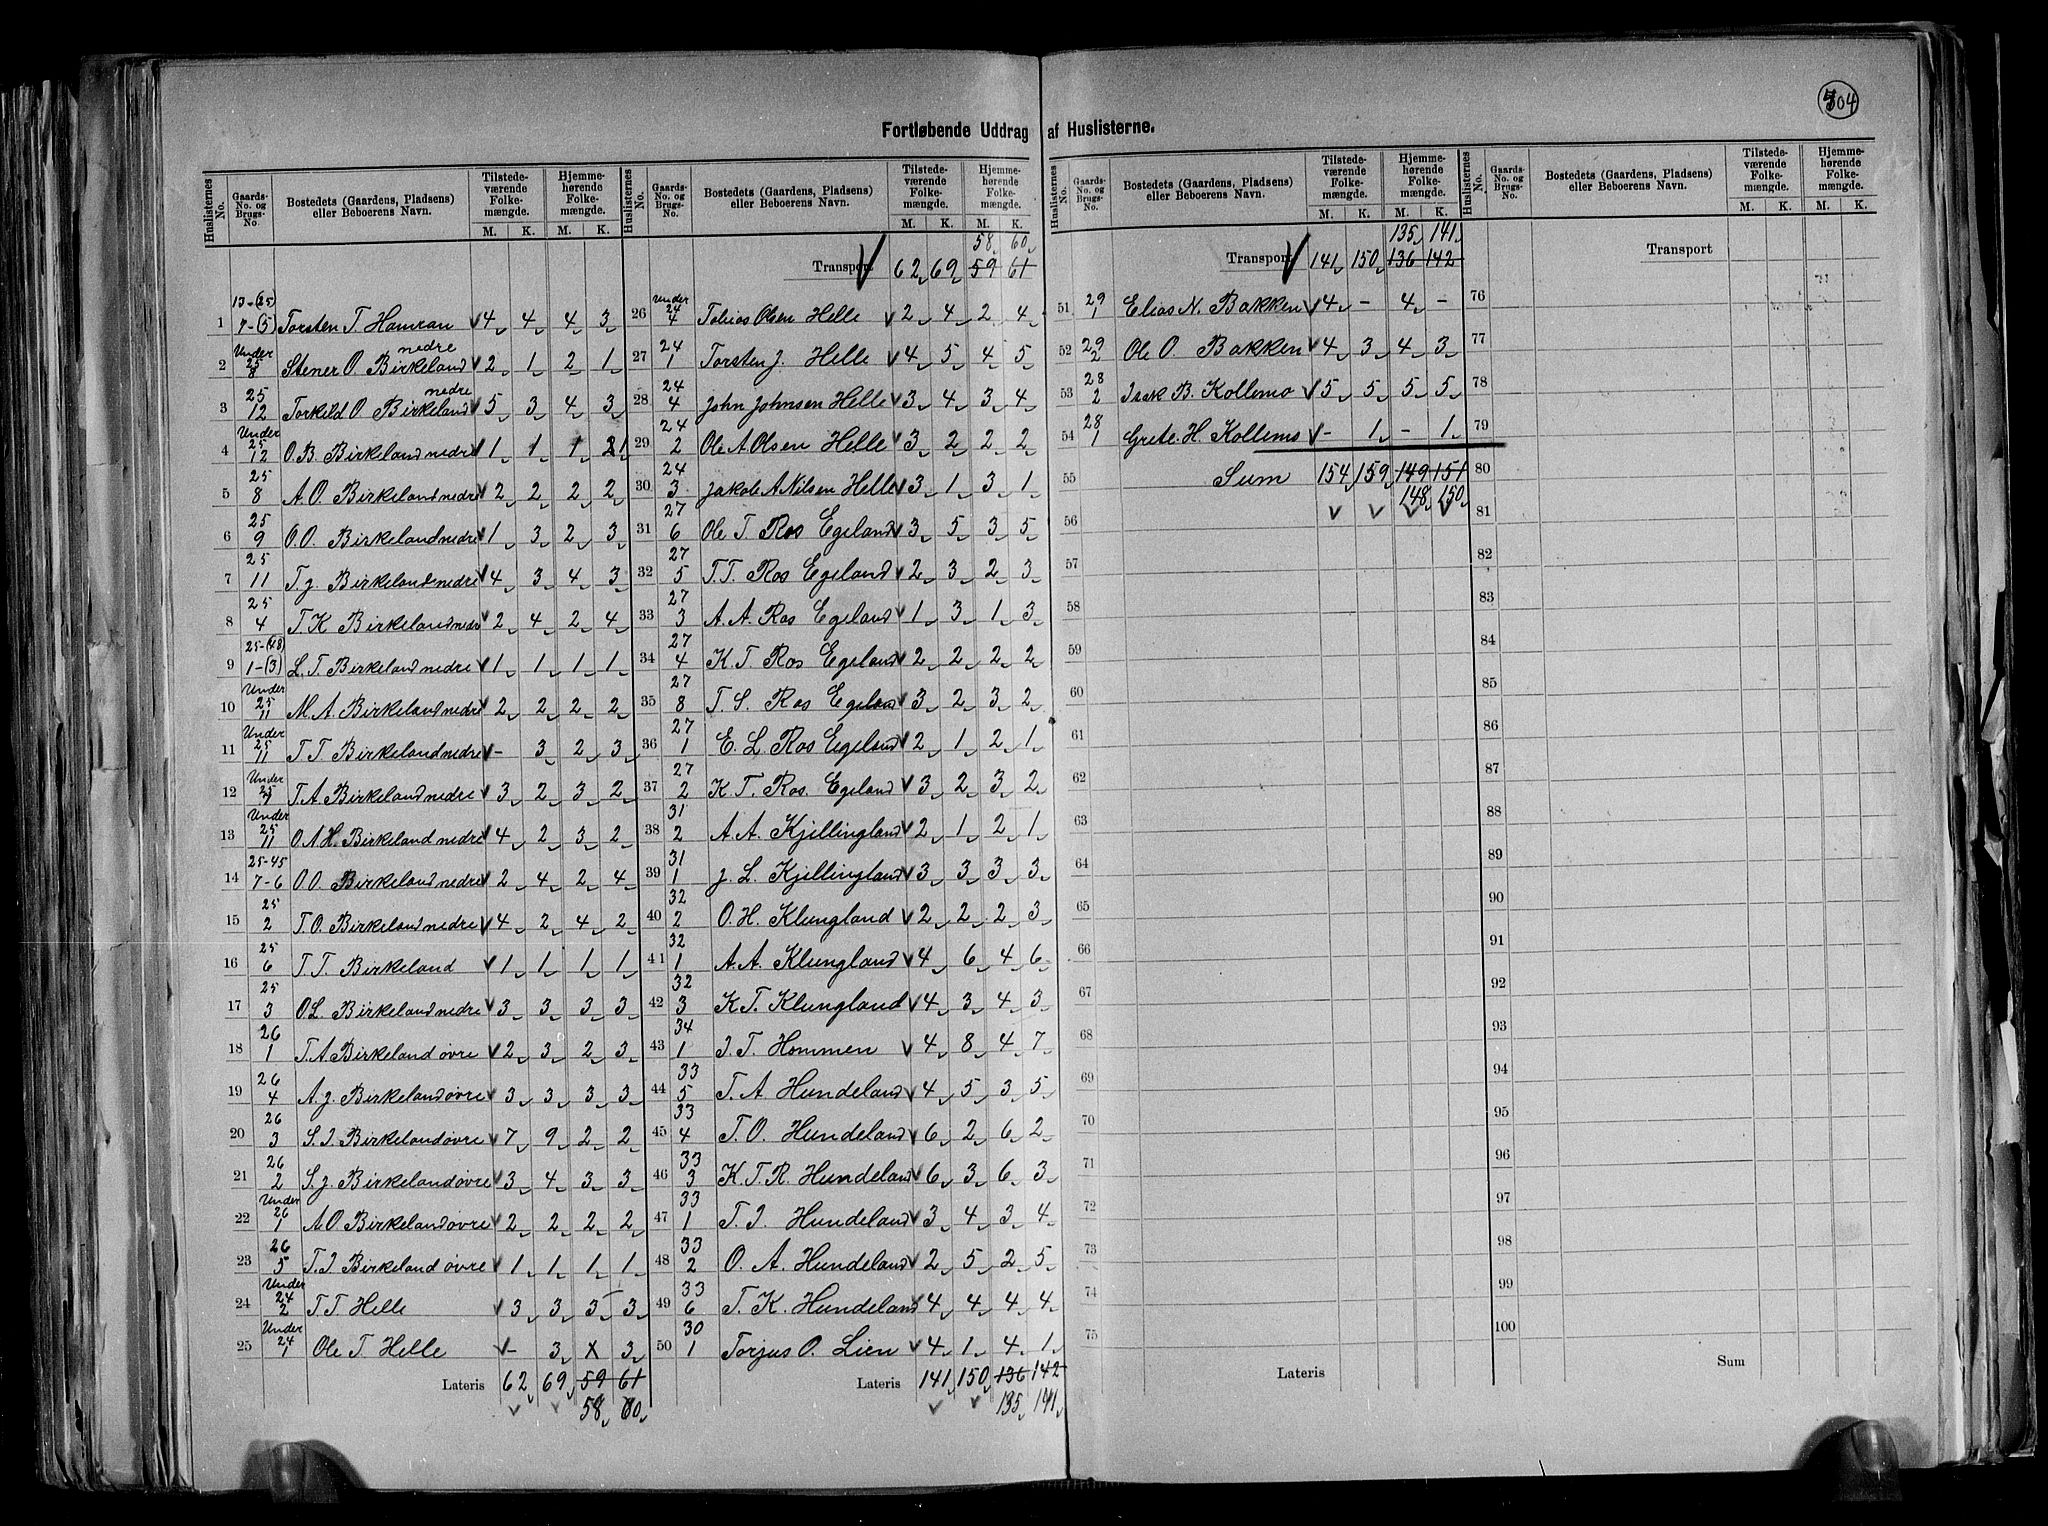 504
Fortløbende Uddrag af Huslisterne.
Huslisternes No. Gaards-No. og Brugs-No. Bostedets (Gaardens, Pladsens) eller Beboerens Navn. Tilstedeværende Folkemængde. M. K. Hjemmehørende Folkemængde. M. K.
1 13-(25) 7-(5) Torsten T Hamran 4 4 4 3
2 Under 25 8 Stener O. Birkeland nedre 2 1 2 1
3 25 12 Torkild O. Birkeland nedre 5 3 4 3
4 Under 25 12 O.B. Birkeland nedre 1 1 1 1
5 25 8 A.O. Birkeland nedre 2 2 2 2
6 25 9 O.O. Birkeland nedre 1 3 2 3
7 25 11 T.J. Birkeland nedre 4 3 4 3
8 25 4 T.K Birkeland nedre 2 4 2 4
9 25-(48) 1-(3) L.T. Birkeland nedre 1 1 1 1
10 Under 25 11 M.A. Birkeland nedre 2 2 2 2
11 Under 25 11 T T. Birkeland nedre - 3 2 3
12 Under 25 T.A Birkeland nedre 3 2 3 2
13 Under 25 11 O.A.H. Birkeland nedre 4 2 3 2
14 25-45 7-6 O.O. Birkeland nedre 2 4 2 4
15 25 2 T.O. Birkeland nedre 4 2 4 2
16 25 6 T T. Birkeland 1 1 1 1
17 25 3 O.L. Birkeland nedre 3 3 3 3
18 26 1 T.A. Birkeland øvre 2 3 2 3
19 26 4 A.J. Birkeland øvre 3 3 3 3
20 26 3 S.I. Birkeland øvre 7 9 2 2
21 26 2 S.J. Birkeland øvre 3 4 3 3
22 Under 26 1 A.O. Birkeland øvre 2 2 2 2
23 26 5 T.I Birkeland øvre 1 1 1 1
24 Under 24 2 T T. Helle 3 3 3 3
25 Under 24 1 Ole T. Helle - 3 x 3
Lateris 62 69 59 61
58 60
Huslisternes No. Gaards-No. og Brugs-No. Bostedets (Gaardens, Pladsens) eller Beboerens Navn. Tilstedeværende Folkemængde. M. K. Hjemmehørende Folkemængde. M. K.
58 60
Transport 62 69 59 61
26 Under 24 4 Tobias Olsen Helle 2 4 2 4
27 24 1 Torsten J. Helle 4 5 4 5
28 24 4 John Johnsen Helle 3 4 3 4
29 24 2 Ole A Olsen Helle 3 2 2 2
30 24 3 Jakob A Nilsen Helle 3 1 3 1
31 27 6 Ole T. Ros Egeland 3 5 3 5
32 27 5 T.T. Ros Egeland 2 3 2 3
33 27 3 A. A. Ros Egeland 1 3 1 3
34 27 4 K.T. Ros Egeland 2 2 2 2
35 27 8 T. S. Ros Egeland 3 2 3 2
36 27 1 E. L. Ros Egeland 2 1 2 1
37 27 2 K. T. Ros. Egeland 3 2 3 2
38 31 2 A. A. Kjillingland 2 1 2 1
39 31 1 J L. Kjillingland 3 3 3 3
40 32 2 O. H. Klungland 2 2 2 3
41 32 1 A.A. Klungland 4 6 4 6
42 32 3 K T. Klungland 4 3 4 3
43 34 1 I. T. Hommen 4 8 4 7
44 33 5 T. A Hundeland 4 5 3 5
45 33 4 T. O. Hundeland 6 2 6 2
46 33 3 K. T. R. Hundeland 6 3 6 3
47 33 1 T. I. Hundeland 3 4 3 4
48 33 2 O. A. Hundeland 2 5 2 5
49 33 6 T. K. Hundeland 4 4 4 4
50 30 1 Torjus O. Lien 4 1 4 1
Lateris 141 150 136 142
135 141
Huslisternes No. Gaards-No. og Brugs-No. Bostedets (Gaardens, Pladsens) eller Beboerens Navn. Tilstedeværende Folkemængde. M. K. Hjemmehørende Folkemængde. M. K.
135 141
Transport 141 150 136 142
51 29 1 Elias N. Bakken 4 - 4 -
52 29 2 Ole O. Bakken 4 3 4 3
53 28 2 Isak B. Kollemo 5 5 5 5
54 28 1 Grete. H. Kollemo - 1 - 1
55 Sum 154 159 149 151
148 150
56
57
58
59
60
61
62
63
64
65
66
67
68
69
70
71
72
73
74
75
Lateris
Huslisternes No. Gaards-No. og Brugs-No. Bostedets (Gaardens, Pladsens) eller Beboerens Navn. Tilstedeværende Folkemængde. M. K. Hjemmehørende Folkemængde. M. K.
Transport
76
77
78
79
80
81
82
83
84
85
86
87
88
89
90
91
92
93
94
95
96
97
98
99
100
Sum